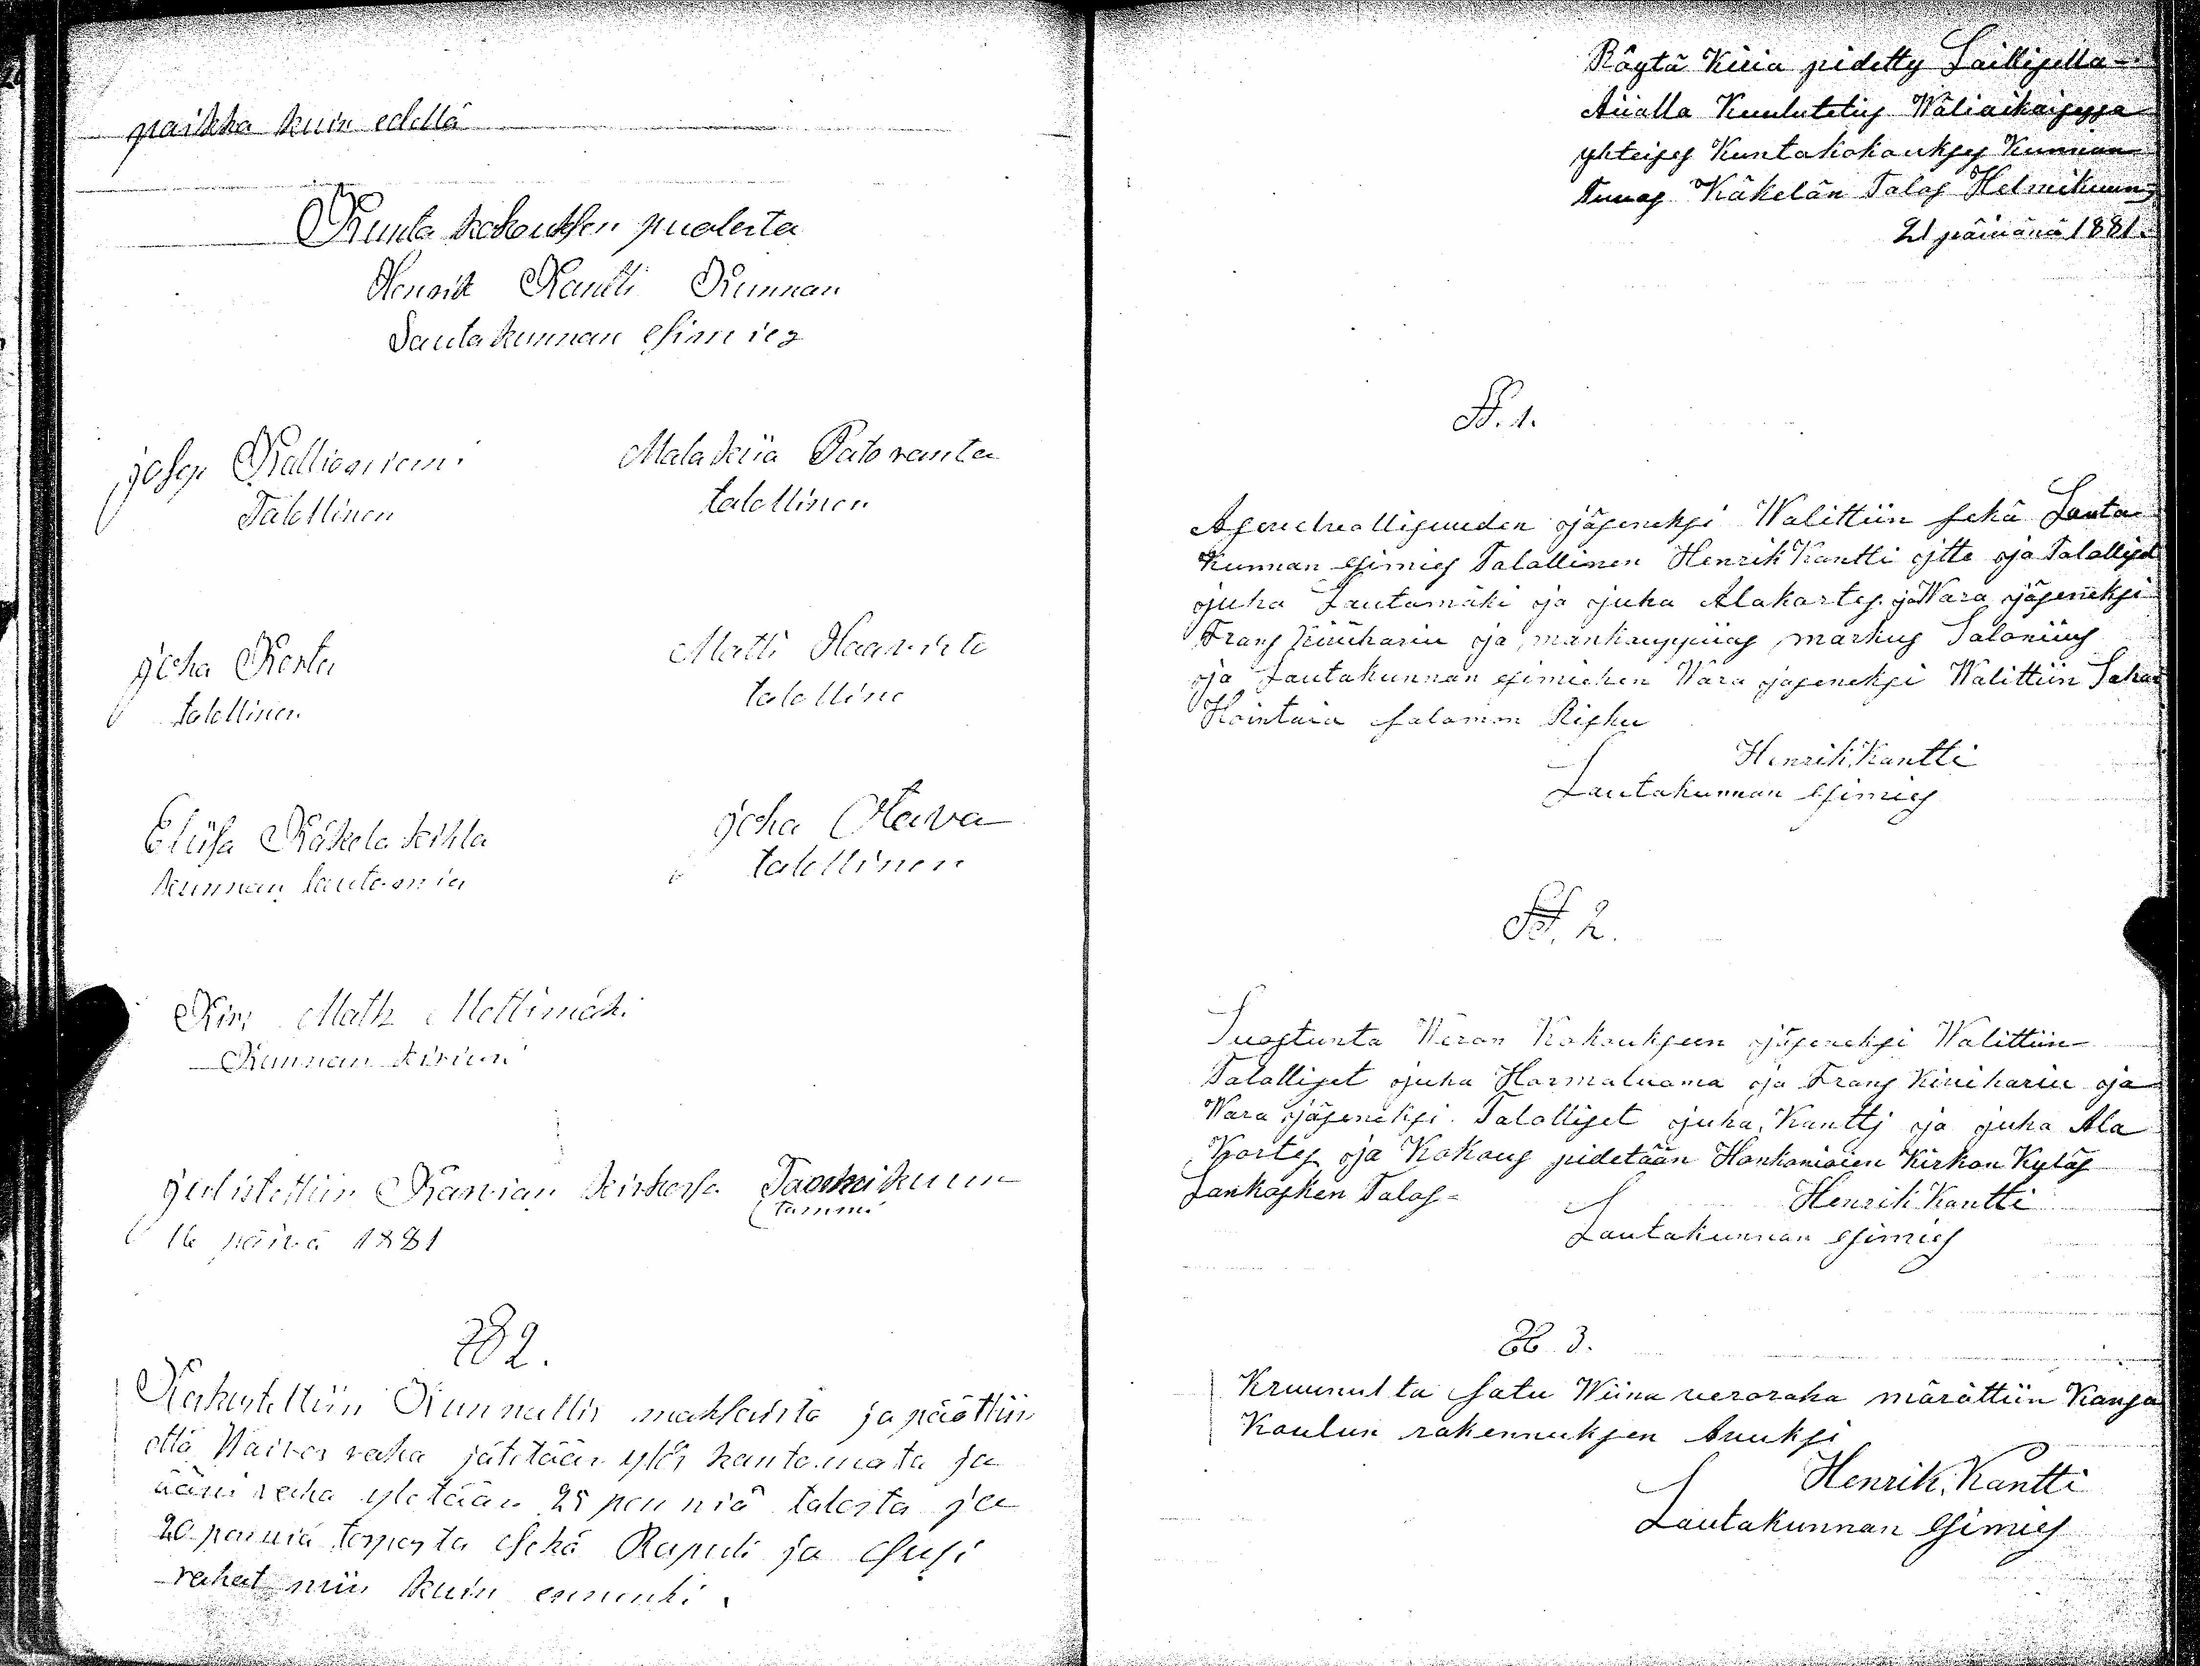 paikka kuin edellä
Kunta kokouksen puolesta
Henrik Kantti Kunnan
Lautakunnan esimies
josep Kallioniemi
Talollinen
Malakiia Patoranta
talollinen
joha Korte
talollinen
Matti Haavisto
talolline
Eliisa Käkelä kihla
kunnan lautamies
joha Otawa
talollinen
Kirj Math Mottimäki
Kunnan kirjuri
julistettiin Kärvian kirkossa Taamikuun
tammi
16 päivä 1881
§ 2.
Keskusteltiin Kunnallis maksuista ja päättiin
että Waivas raha jätetään ylös kantamata ja
ääni raha yletään 25 penniä talosta ja
20 penniä torpasta sekä Rapuli ja susi
rahat niin kuin ennenki.
Pöytä Kirja pidetty Laillisella
Aijalla Kuulutetus Wäliaikaisessa
yhteises Kuntakokoukses Kunnian
Tuuas Käkelän Talos Helmikuun
21 päivänä 1881.
§. 1.
Asewelwollisuuden jäseneksi Walittiin sekä Lauta
Kunnan esimies Talollinen Henrik Kantti itte ja Talolliset
juha Lautamäki ja juha Alakortes ja Wara jäseneksi
Frans Kiiuharju ja maakauppias markus Saloniius
ja Lautakunnan esimiehen Wara jäseneksi Walittiin Lahan
Hointaia salomon Risku
Henrik Kantti
Lautakunnan esimies
§. 2.
Suostunta Weron Kokouksen jäseneksi Walittiin
Talolliset juha Harmaluoma ja Frans Kiiuharju ja
Wara jäseneksi Talolliset juha Kantti ja juha Ala
Kortes ja Kokous pidetään Honkonioien Kirkon Kyläs
Lankosken Talos
Henrik Kantti
Lautakunnan esimies
§ 3.
Kruunulta satu Wiina veroraha märättiin Kansa
Koulun rakennuksen Auuksi
Henrik Kantti
Lautakunnan esimies